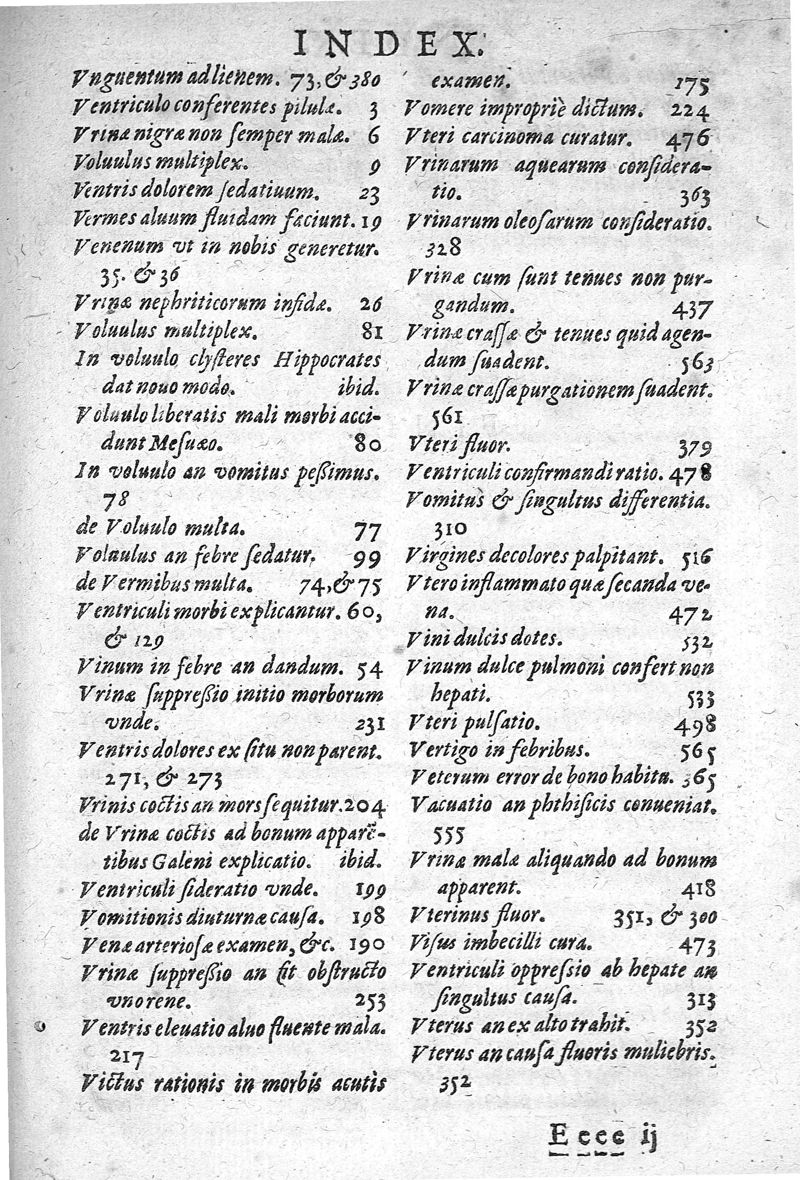 INDEX.
Vnguentum ad lienem. 73, & 380
Ventriculo conferentes pilulæ. 3
Vrinæ nigræ non ſemper malæ. 6
Voluulus multiplex. 9
Ventris dolorem ſedatiuum. 23
Vermes aluum fluidam faciunt. 19
Venenum vt in nobis generetur.
35. & 36
Vrinæ nephriticorum infidæ. 26
Voluulus multiplex. 81
In voluulo clyſteres Hippocrates
dat nouo modo. ibid.
Voluulo liberatis mali morbi acci-
dunt Meſuæo. 80
In voluulo an vomitus peßimus.
78
de Voluulo multa. 77
Voluulus an febre ſedatur. 99
de Vermibus multa. 74, & 75
Ventriculi morbi explicantur. 60,
& 129
Vinum in febre an dandum. 54
Vrinæ ſuppreßio initio morborum
vnde. 231
Ventris dolores ex ſitu non parent.
271, & 273
Vrinis coctis an mors ſequitur. 204
de Vrinæ coctis ad bonum apparẽ-
tibus Galeni explicatio. ibid.
Ventriculi ſideratio vnde. 199
Vomitionis diuturnæ cauſa. 198
Venæ arterioſæ examen, &c. 190
Vrinæ ſuppreßio an ſit obſtructo
vno rene. 253
Ventris eleuatio aluo fluente mala.
217
Victus rationis in morbis acutis
examen. 175
Vomere impropriè dictum. 224
Vteri carcinoma curatur. 476
Vrinarum aquearum conſidera-
tio. 363
Vrinarum oleoſarum conſideratio.
328
Vrinæ cum ſunt tenues non pur-
gandum. 437
Vrinæ craſſæ & tenues quid agen-
dum ſuadent. 563
Vrinæ craſſæ purgationem ſuadent.
561
Vteri fluor. 379
Ventriculi confirmandi ratio. 478
Vomitus & ſingultus differentia.
310
Virgines decolores palpitant. 516
Vtero inflammato quæ ſecanda ve-
na. 472
Vini dulcis dotes. 532
Vinum dulce pulmoni confert non
hepati. 533
Vteri pulſatio. 498
Vertigo in febribus. 565
Veterum error de bono habitu. 365
Vacuatio an phthiſicis conueniat.
555
Vrinæ malæ aliquando ad bonum
apparent. 418
Vterinus fluor. 351, & 300
Viſus imbecilli cura. 473
Ventriculi oppreſsio ab hepate an
ſingultus cauſa. 313
Vterus an ex alto trahit. 352
Vterus an cauſa fluoris muliebris.
352
Eeee ij